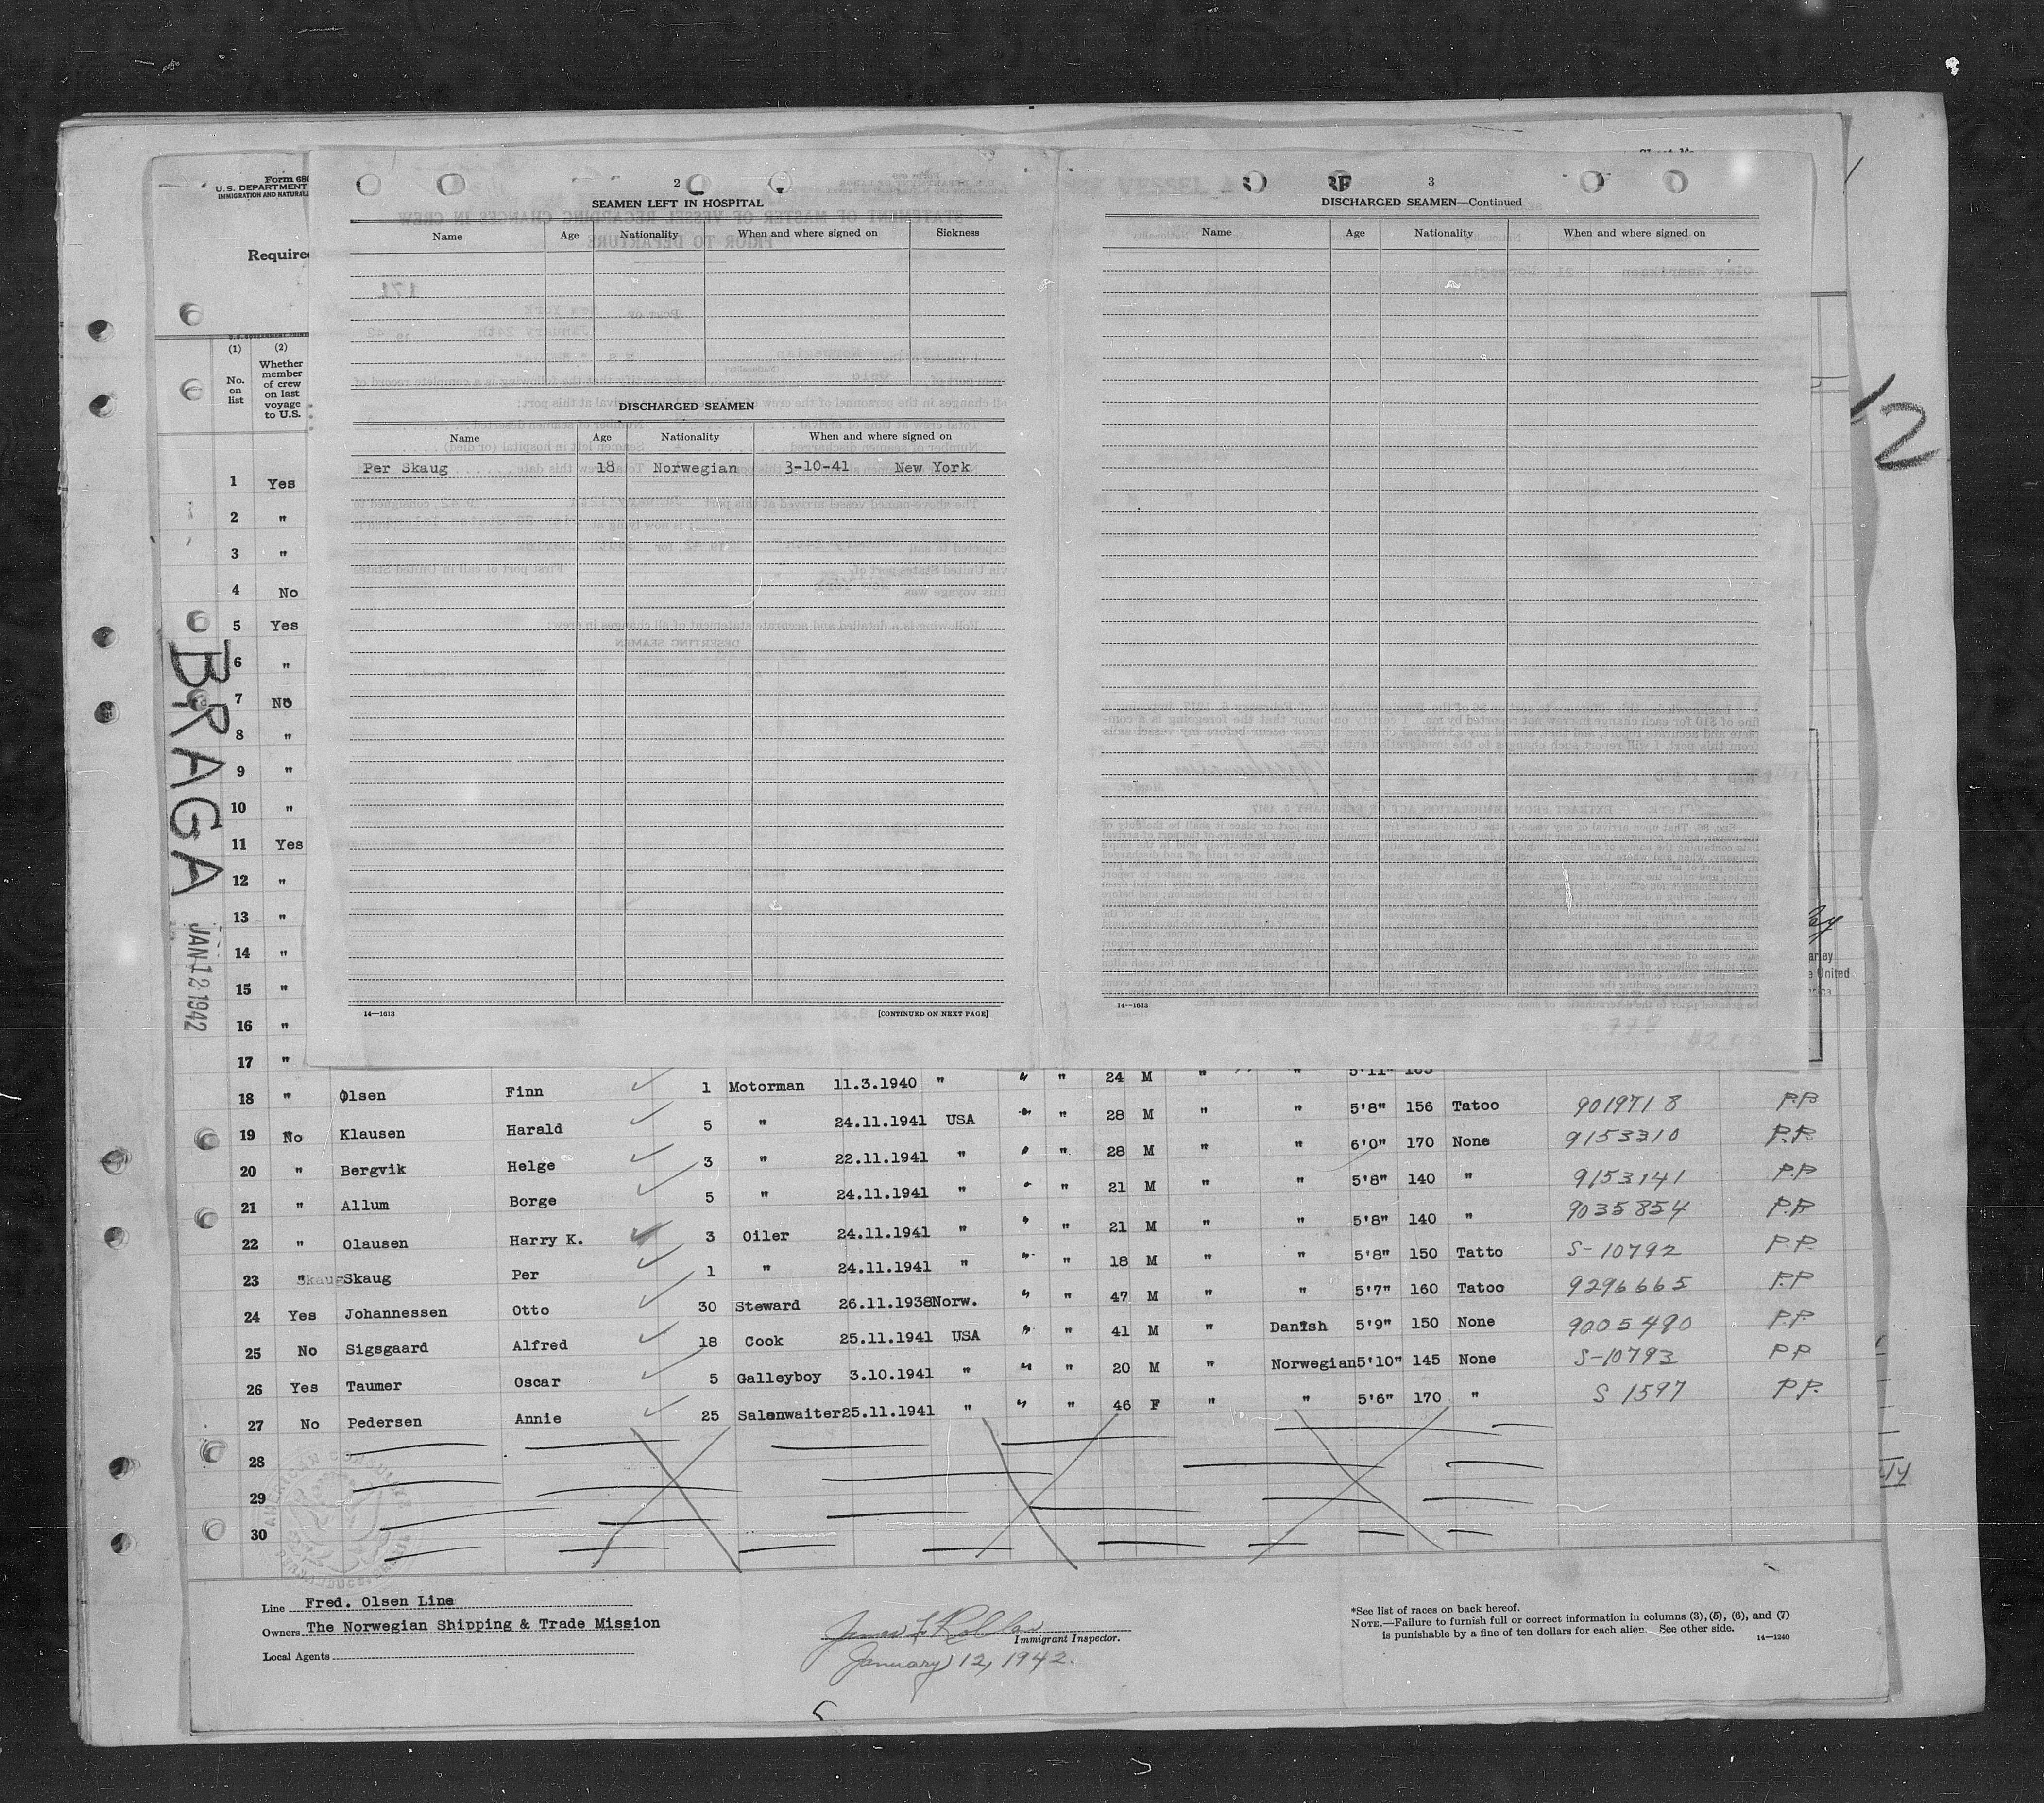 Form 680
U.S. DEPARTMENT
IMMIGRATION AND NATURALI
Require
(1) (2)
No. on list
Whether member of crew on last voyage to U.S.
2
SEAMEN LEFT IN HOSPITAL
Name Age Nationality When and where signed on Sickness
DISCHARGED SEAMEN
Name Age Nationality When and where signed on
Per Skaug 18 Norwegian 3-10-41 New York
14—1613 [CONTINUED ON NEXT PAGE]
3
DISCHARGED SEAMEN—Continued
Name Age Nationality When and where signed on
14—1613
12
BRAGA
JAN 12 1942
1 Yes
2 "
3 "
4 No
5 Yes
6 "
7 No
8 "
9 "
10 "
11 Yes
12 "
13 "
14 "
15 "
16 "
17 "
18 " Olsen Finn 1 Motorman 11.3.1940 " " " 24 M " " 5'11"
19 No Klausen Harald 5 " 24.11.1941 USA " " 28 M " " 5'8" 156 Tatoo 9019718 P.P.
20 " Bergvik Helge 3 " 22.11.1941 " " " 28 M " " 6'0" 170 None 9153310 P.P.
21 " Allum Borge 5 " 24.11.1941 " " " 21 M " " 5'8" 140 " 9153141 P.P.
22 " Olausen Harry K. 3 Oiler 24.11.1941 " " " 21 M " " 5'8" 140 " 9035854 P.P.
23 " Skaug Per 1 " 24.11.1941 " " " 18 M " " 5'8" 150 Tatto S-10792 P.P.
24 Yes Johannessen Otto 30 Steward 26.11.1938 Norw. " " 47 M " " 5'7" 160 Tatoo 9296665 P.P.
25 No Sigsgaard Alfred 18 Cook 25.11.1941 USA " " 41 M " Danish 5'9" 150 None 9005490 P.P.
26 Yes Taumer Oscar 5 Galleyboy 3.10.1941 " " " 20 M " Norwegian 5'10" 145 None S-10793 P.P.
27 No Pedersen Annie 25 Salonwaiter 25.11.1941 " " " 46 F " " 5'6" 170 " S 1597 P.P.
28
29
30
Line Fred. Olsen Line
Owners The Norwegian Shipping & Trade Mission
Local Agents
Immigrant Inspector.
January 12, 1942.
*See list of races on back hereof.
NOTE.—Failure to furnish full or correct information in columns (3), (5), (6), and (7)
is punishable by a fine of ten dollars for each alien. See other side. 14—1240